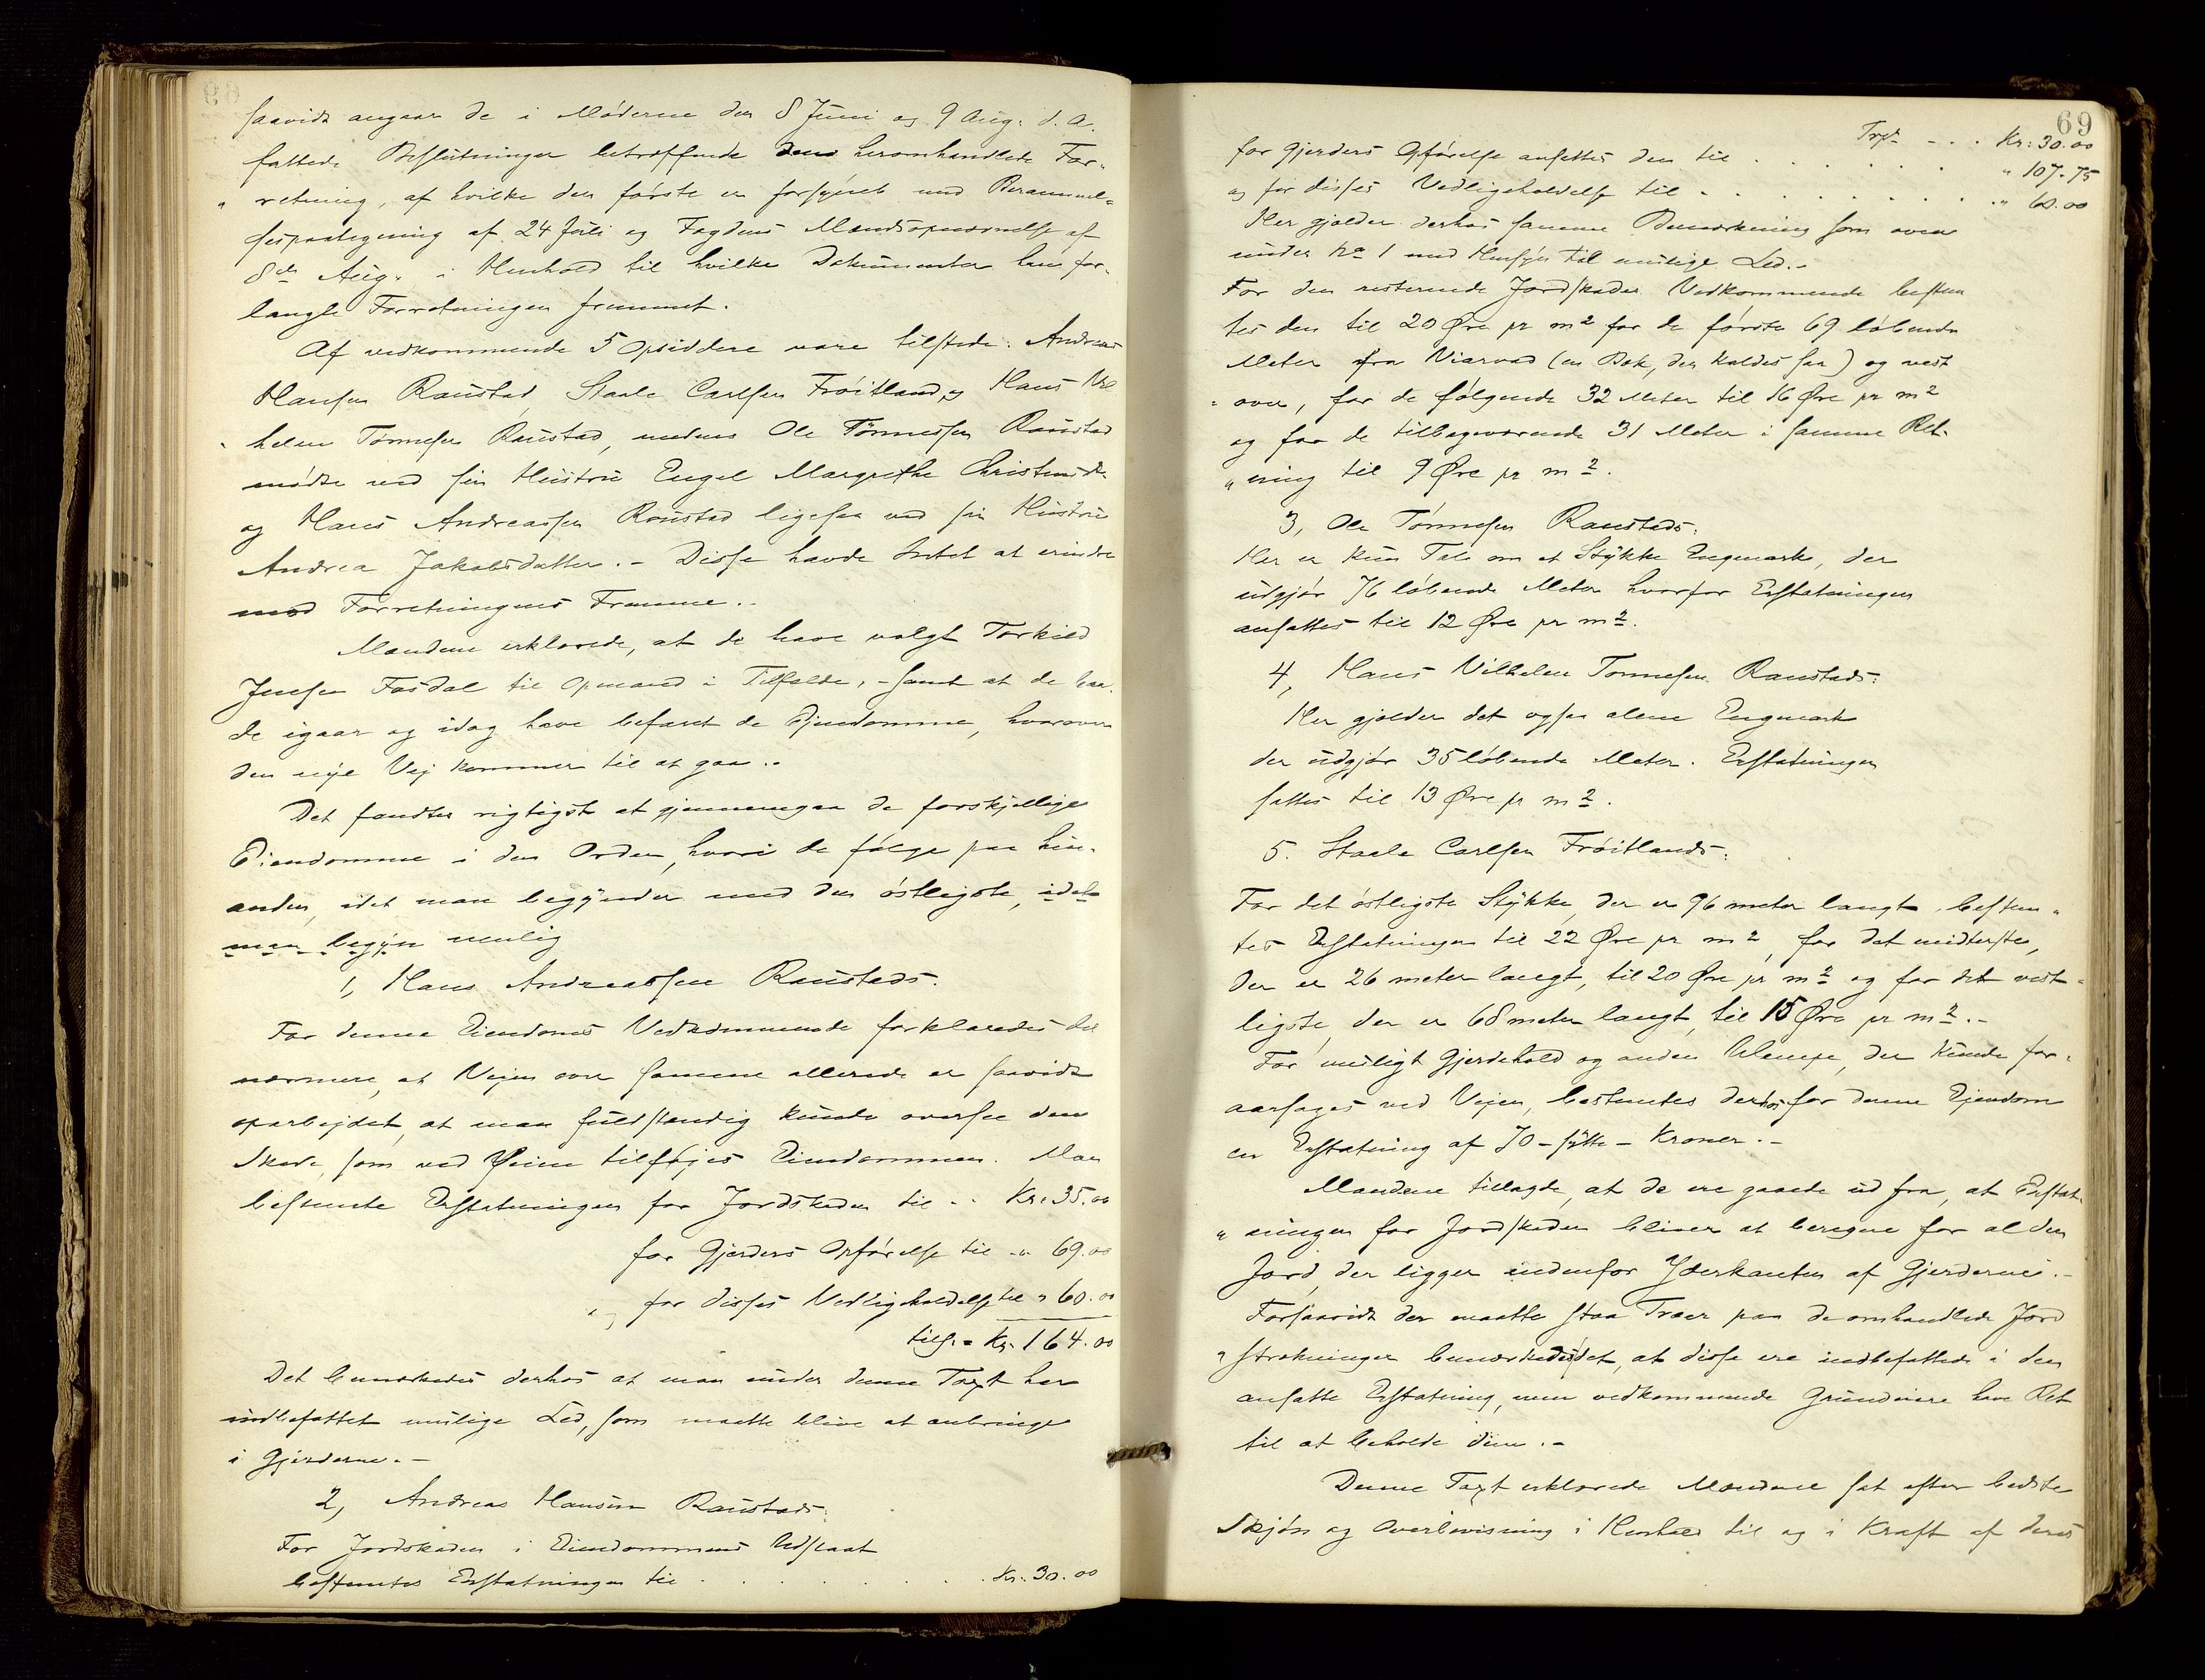 saavidt angaar de i Møderne den 8 Juni og 9 Aug. d. A.
fattede Beslutninger betræffende den heromhandlede For-
" retning, af hvilke den første er forsynet med Berammel-
sespaategning af 24 Juli og Fogdens Mandsopnævnelse af
8de Aug. i Henhold til hvilke Dokumenter han for-
langte Forretningen fremmet.
Af vedkommende 5 Opsiddere vare tilstede: Andreas
Hansen Raustad, Staale Carlsen Frøitland, og Hans Vil
" helm Tønnesen Raustad, medens Ole Tønnessen Raustad
mødte ved sin Hustru Engel Margrethe Christensdr.
og Hans Andreassen Raustad ligesaa ved sin Hustru
Andrea Jakobsdatter. - Disse havde Intet at erindre
mod Forretningens Fremme. -
Mændene erklærede, at de have valgt Torkild
Jensen Fasdal til Opmand i Tilfælde, - samt at de baa-
de igaar og idag have befaret de Ejendomme, hvorover
den nye Vej kommer til at gaa. -
Det fandtes rigtigst at gjennemgaa de forskjellige
Eiendomme i den Orden, hvori de følge paa hin-
anden, idet man begynder med den østligste, idet
man begyn nemlig
1, Hans Andreassen Raustads.
For denne Eiendoms Vedkommende forklaredes det
nærmere, at Vejen over samme allerede er saavidt
oparbejdet, at man fuldstændig kunde overse den
Skade, som ved Veien tilføjes Eiendommen. Man
bestemte Erstatningen for Jordskaden til - . Kr. 35.00
for Gjerders Opførelse til - " 69.00
og for disses Vedligeholdelse til " 60.00
tils. = Kr. 164.00
Det bemærkedes derhos at man under denne Taxt har
indbefattet mulige Led, som maatte blive at anbringe
i Gjerderne. -
2, Andreas Hansen Raustads:
For Jordskaden i Eiendommens Udslaat
bestemtes Erstatningen til . . . . . . . Kr. 30.00
69
Trpt. - - . Kr: 30.00
for Gjerders Opførelse ansattes den til . . . . . . " 107.75
og for disses Vedligeholdelse til . . . . . . . . " 60.00
Her gjælder derhos samme Bemærkning som oven
under No 1 med Hensyn til mulige Led. -
For den resterende Jordskades Vedkommende bestem
tes den til 20 Øre pr m2 for de første 69 løbende
Meter fra Viarvad (en Bæk, der kaldes saa) og vest
" over, for de følgende 32 Meter til 16 Øre pr m2
og for de tilbageværende 31 Meter i samme Ret-
" ning til 9 Øre pr m2.
3, Ole Tønnesen Raustads:
Her er kun Tale om et Stykke Engmark, der
udgjør 76 løbende Meter hvorfor Erstatningen
ansattes til 12 Øre pr m2.
4, Hans Vilhelm Tønnesen Raustads:
Her gjælder det ogsaa alene Engmark
der udgjør 35 løbende Meter. Erstatningen
sattes til 13 Øre pr m2.
5. Staale Carlsen Frøitlands:
For det østligste Stykke, der er 96 meter langt bestem-
tes Erstatningen til 22 Øre pr m2, for det midterste,
der er 26 meter langt, til 20 Øre pr m2 og for det vest-
ligste, der er 68 meter langt, til 15 Øre pr m2. -
For muligt Gjerdehold og anden Ulempe, der kunde for-
aarsages ved Vejen, bestemtes derhos for denne Ejendom
en Erstatning af 70 - sytti - Kroner. -
Mændene tillagde, at de ere gaaede ud fra, at Erstat-
" ningen for Jordskaden bliver at beregne for al den
Jord, der ligger indenfor Yderkanten af Gjerderne. -
Forsaavidt der maatte staa Træer paa de omhandlede Jord
" strækninger bemærkedes det, at disse ere indbefattede i den
ansatte Erstatning, men vedkommende Grundeiere have Ret
til at beholde dem. -
Denne Taxt erklærede Mændene sat efter bedste
Skjøn og Overbevisning i Henhold til og i Kraft af deres